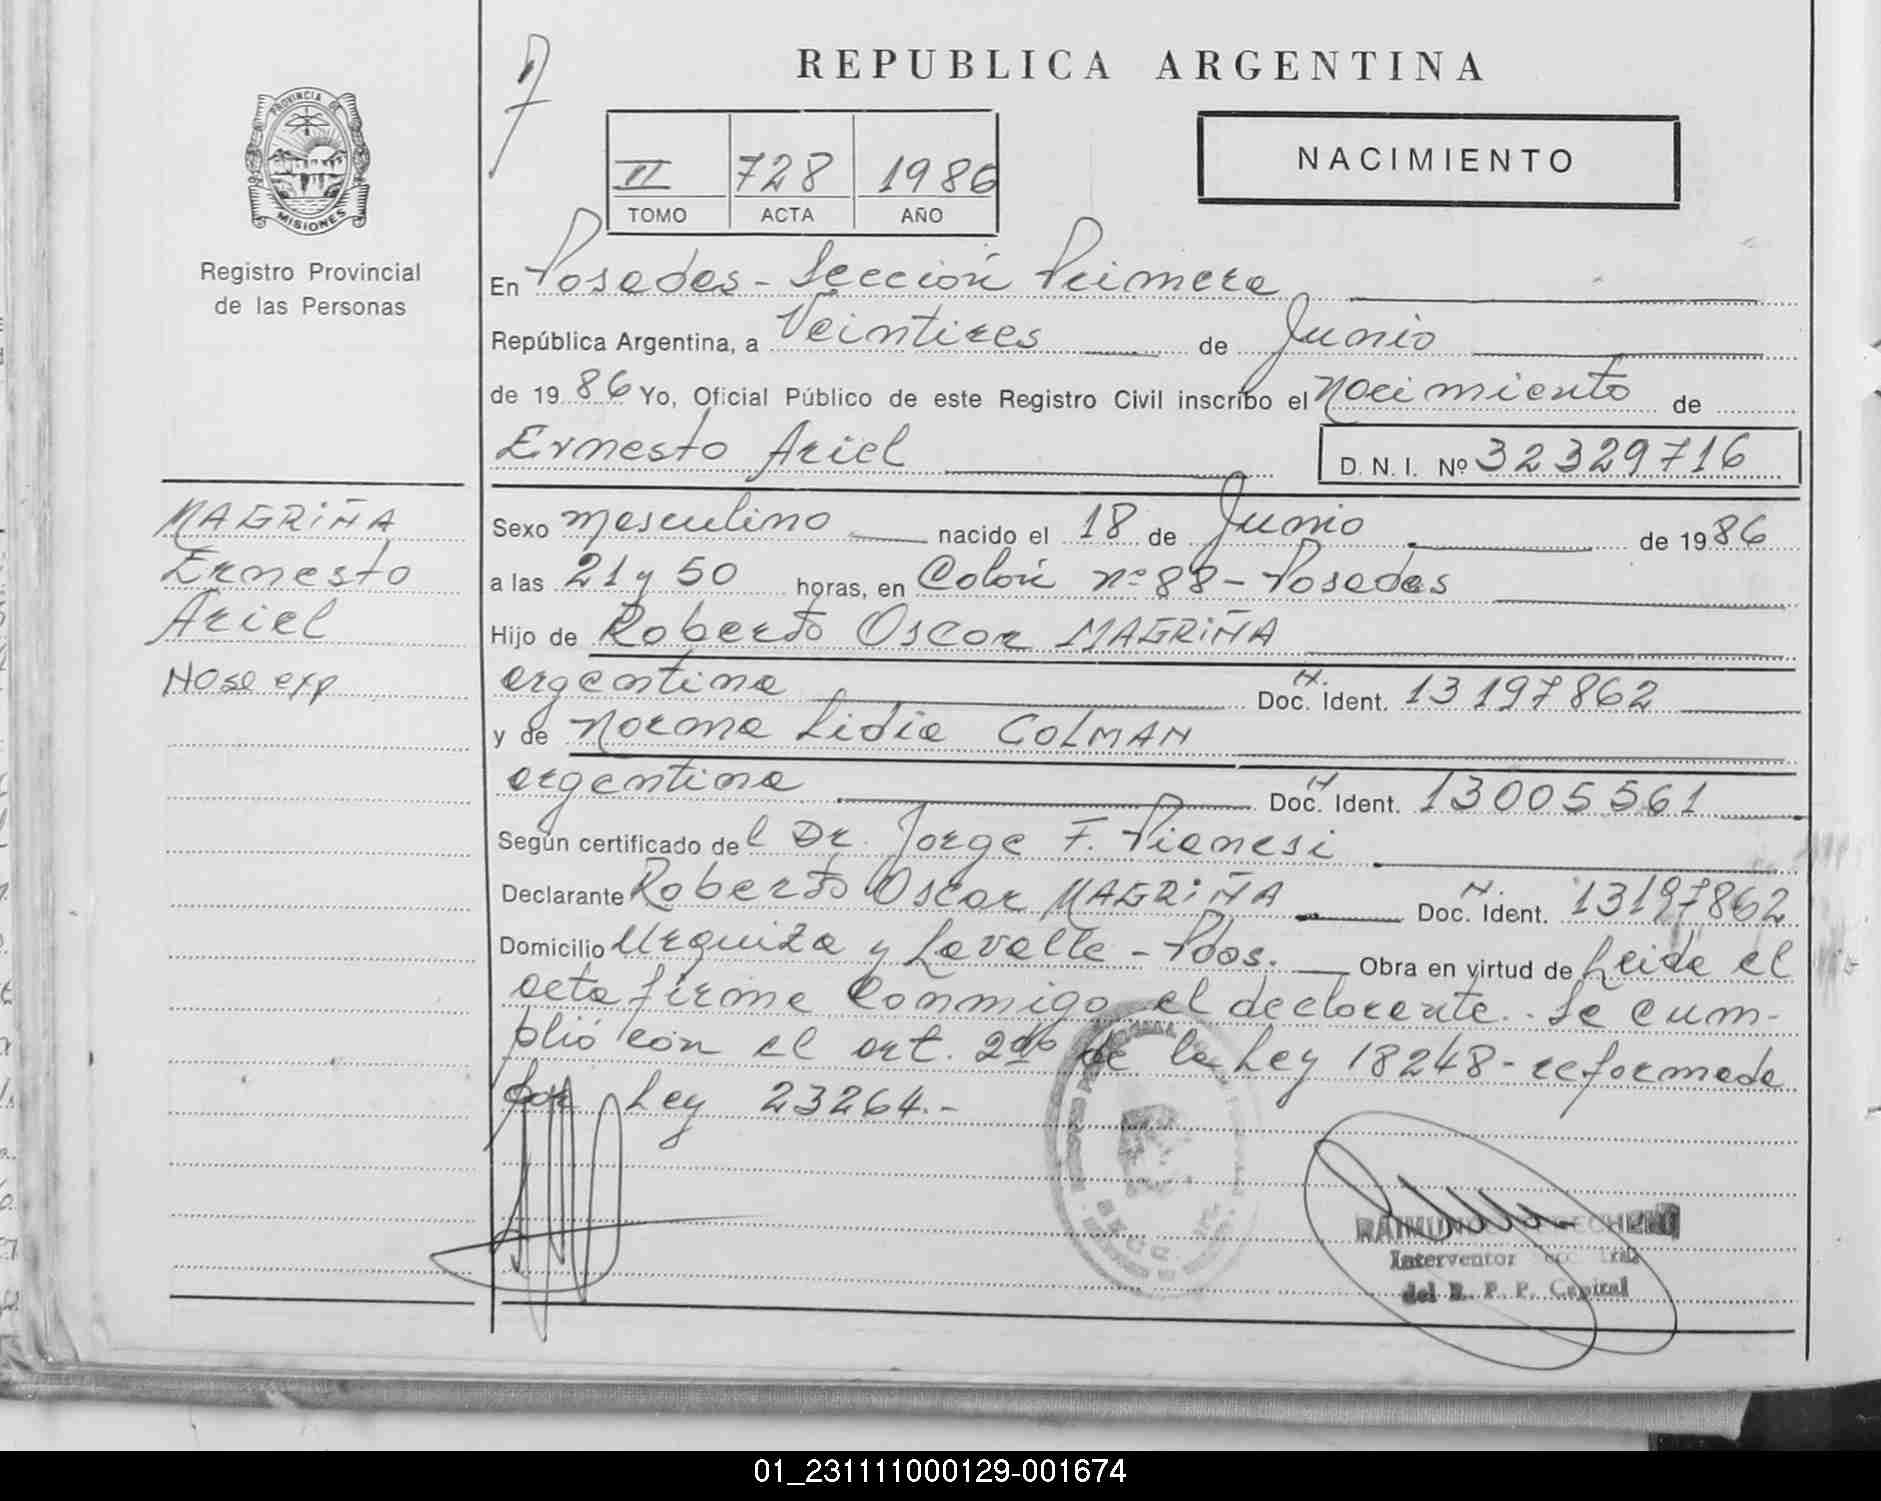 REPUBLICA ARGENTINA
PROVINCIA DE
MISIONES
Registro Provincial
de las Personas
II 728 1986
TOMO ACTA AÑO
NACIMIENTO
En Posadas - Sección Primera
República Argentina, a Veintitres de Junio
de 1986 Yo, Oficial Público de este Registro Civil inscribo el Nacimiento de
Ernesto Ariel D. N. I. Nº 32329716
MAGRIÑA
Ernesto
Ariel
No se exp
Sexo masculino nacido el 18 de Junio de 1986
a las 21 y 50 horas, en Colón nº 88 - Posadas
Hijo de Roberto Oscar MAGRIÑA
argentina Doc. N. Ident. 13197862
y de Norma Lidia COLMAN
argentina Doc. N Ident. 13005561
Según certificado del Dr. Jorge F. Pianesi
Declarante Roberto Oscar MAGRIÑA Doc. N. Ident. 13197862
Domicilio Urquiza y Lavalle - Pdas. Obra en virtud de Leida el
acta firma conmigo el declarante.. Se cum-
plió con el art. 2do de la Ley 18248 - reformada
por Ley 23264.-
Interventor
del R. P. P. Capital
01_231111000129-001674